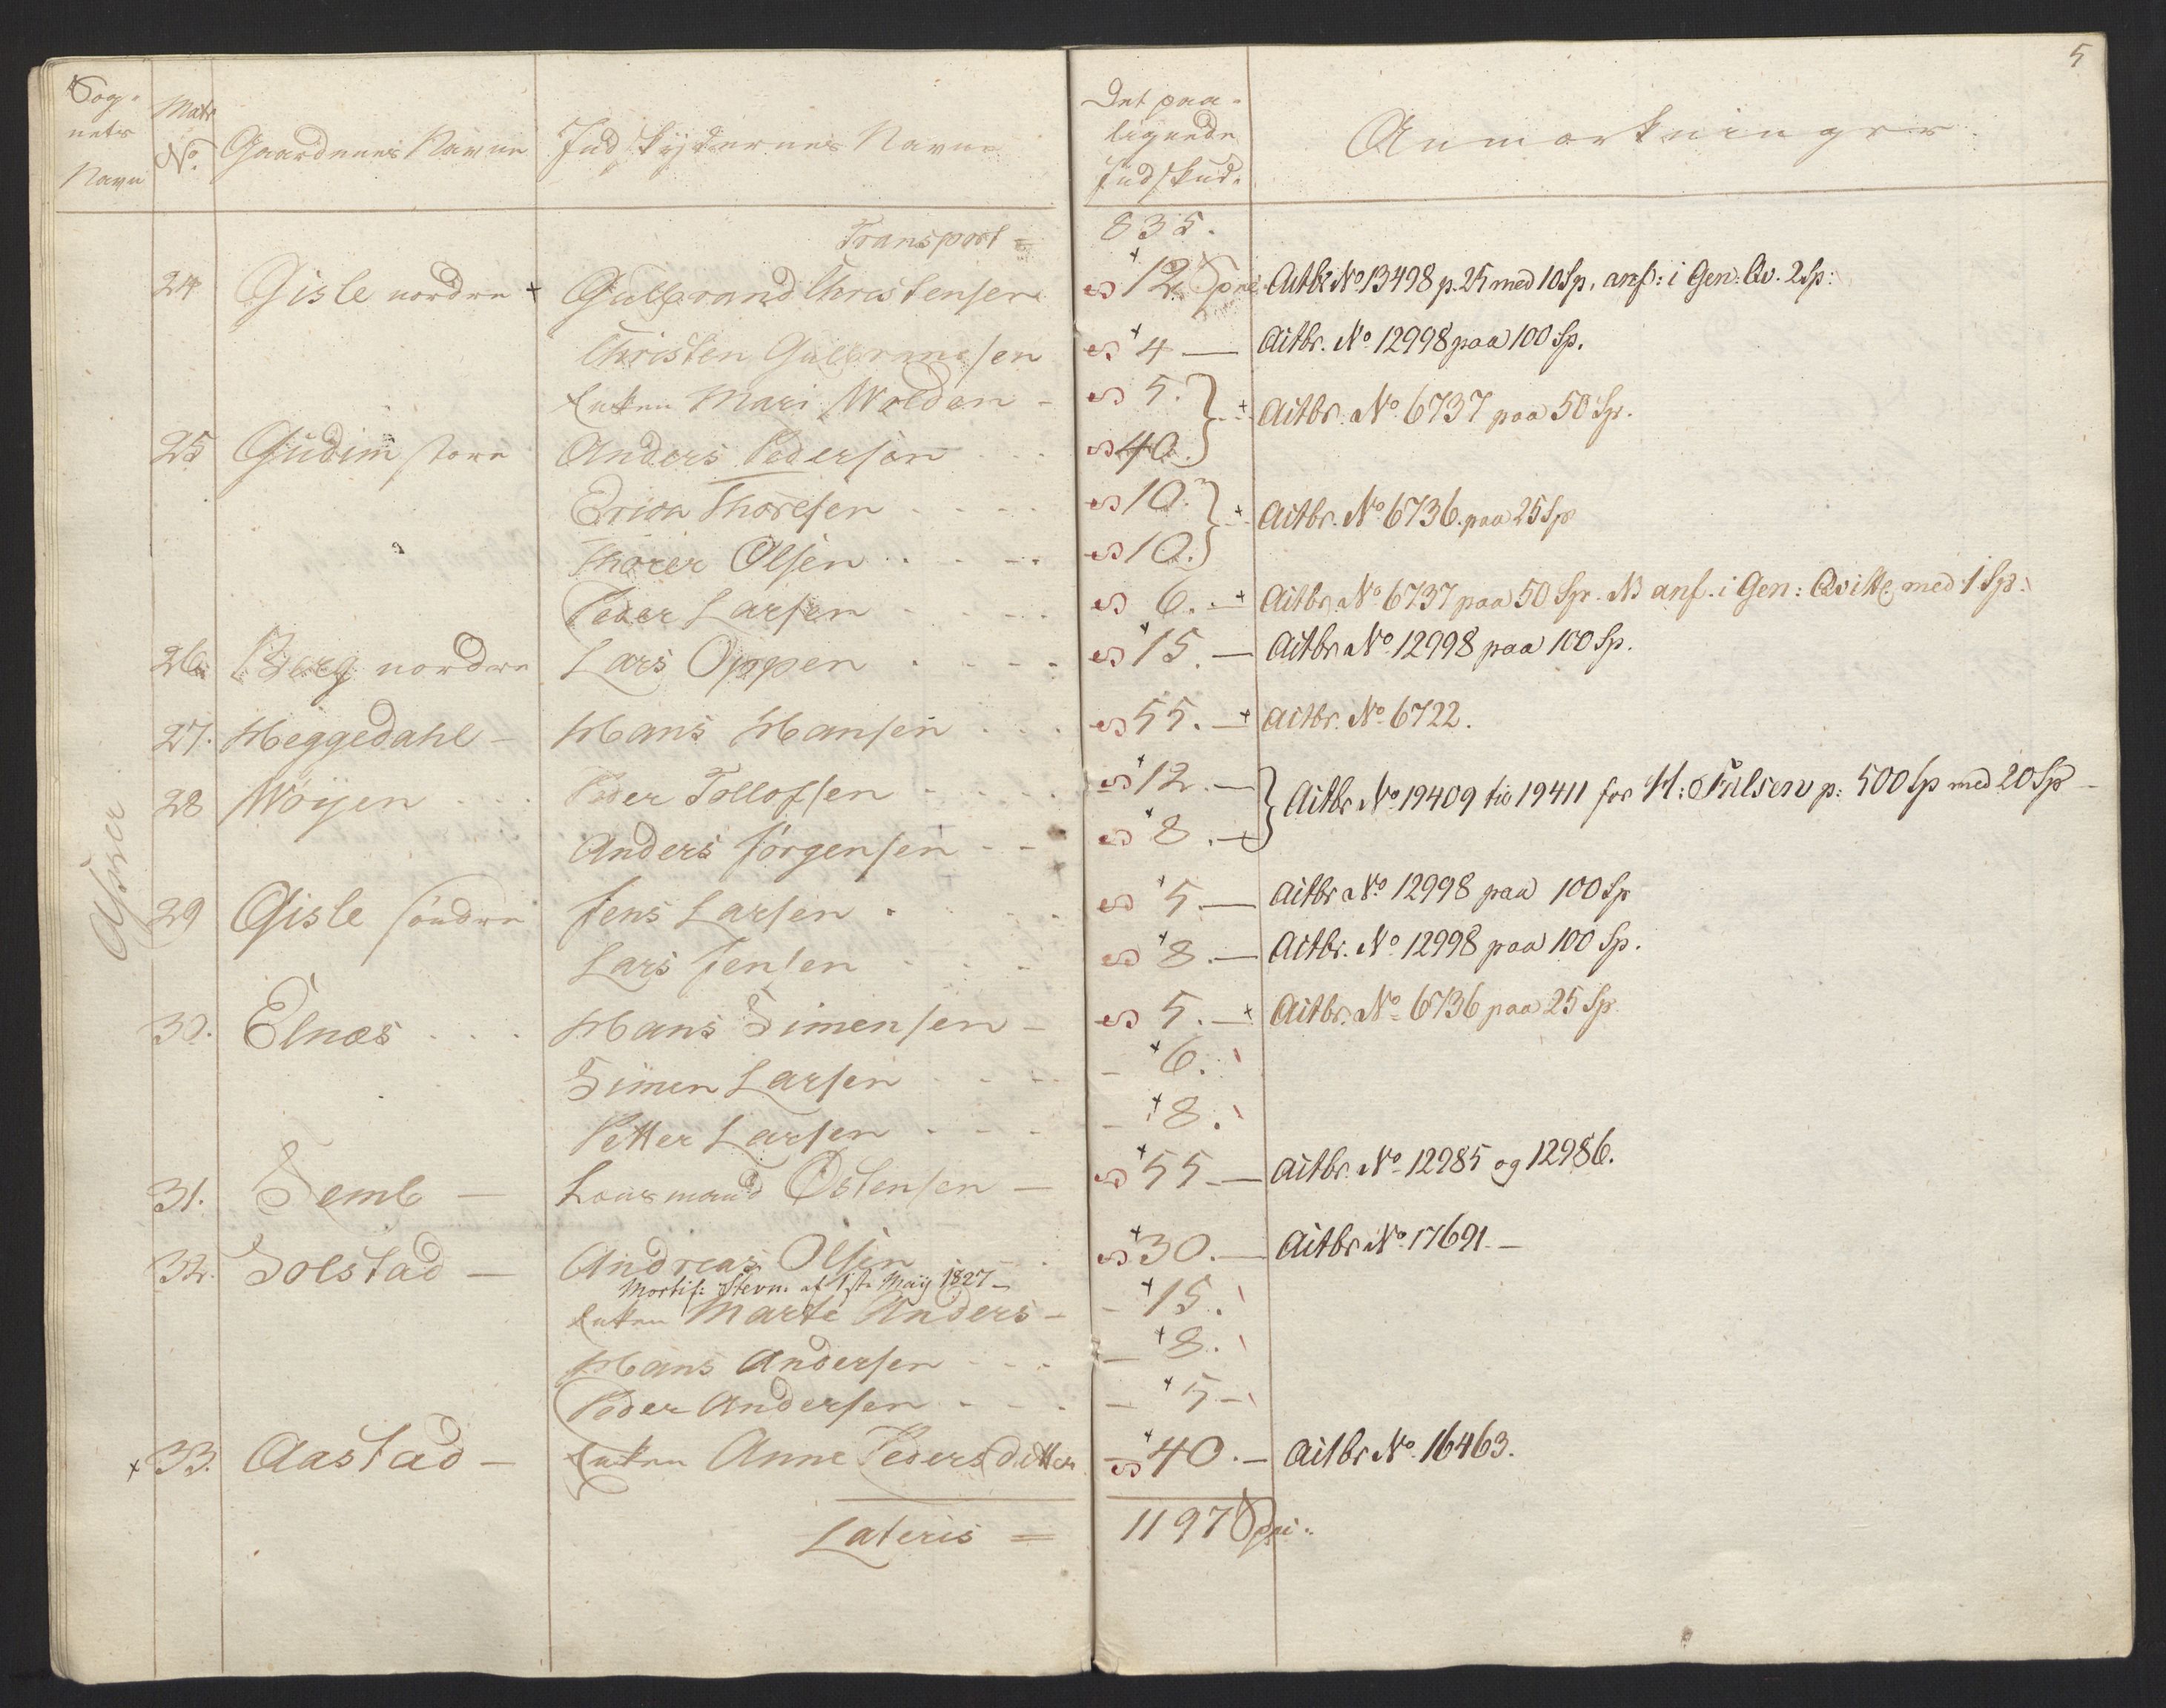 5
Sog-
nets
Navn
Matr
No.
Gaardenes Navne
Indskydernes Navne
Det paa-
lignede
Indskud.
Anmærkninger.
Asker
Transport = 835.
24 Gisle nordre + Gulbrand Christensen + 12 Spec. Actbr No 13498 p. 25 med 10 Sp. anf: i Gen: Qv. 2 Sp:
Christen Gulbransen + 4 — Actbr. No 12998 paa 100 Sp.
Enken Mari Wolden - 5. } + Actbr. No 6737 paa 50 Sp.
25 Gudim store Anders Pedersen - - 40. }
Erica Thoresen - - - - 10. } + Actbr. No 6736. paa 25 Sp
Thorer Olsen - - - - 10. }
Peder Larsen - - - 6. + Actbr. No 6737 paa 50 Sp. NB anf. i Gen: Qvitt. med 1 Sp.
26. Berg nordre Lars Oppen - - - + 15. — Actbr No 12998 paa 100 Sp.
27. Heggedahl — Hans Hansen - - - 55. — + Actbr. No 6722.
28 Wøyen - - - Peder Tollofsen - - - + 12. — } Actbr No 19409 til 19411 for H: Falsen p: 500 Sp med 20 Sp —
Anders Jørgensen - - + 8. — }
29 Gisle søndre Jens Larsen - - - + 5. — Actbr No 12998 paa 100 Sp
Lars Jensen - - - + 8. — Actbr. No 12998 paa 100 Sp.
30. Elnæs - - - Hans Simensen - 5. — + Actbr. No 6736 paa 25 Sp
Simen Larsen - - - - + 6.
Petter Larsen - - - - + 8.
31. Semb — Lensmand Østensen — + 55 — Actbr. No 12985 og 12986.
32. Solstad — Andreas Olsen + 30. — Actbr No 17691. —
Mortif: Stevn. af 1ste Maij 1827 —
Enken Marte Anders - - + 15.
Hans Andersen - - - - + 8.
Peder Andersen - - - - + 5 —
+ 33. Aastad — Enken Anne Pedersdatter + 40. — Actbr No 16463.
Lateris = 1197 Spci: